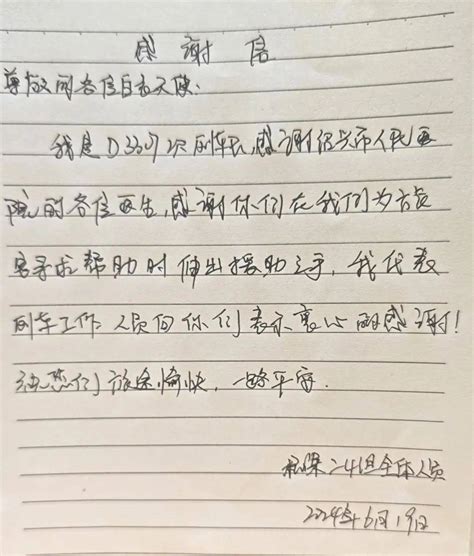 感谢信
尊敬的各位白衣天使：
我是D3307次列车长，感谢汕头市人民医
院的各位医生，感谢你们在我们为旅
客寻求帮助时伸出援助之手，我代表
列车工作人员向你们表示衷心的感谢！
祝您们旅途愉快，一路平安.
二41组全体人员
2024年6月19日